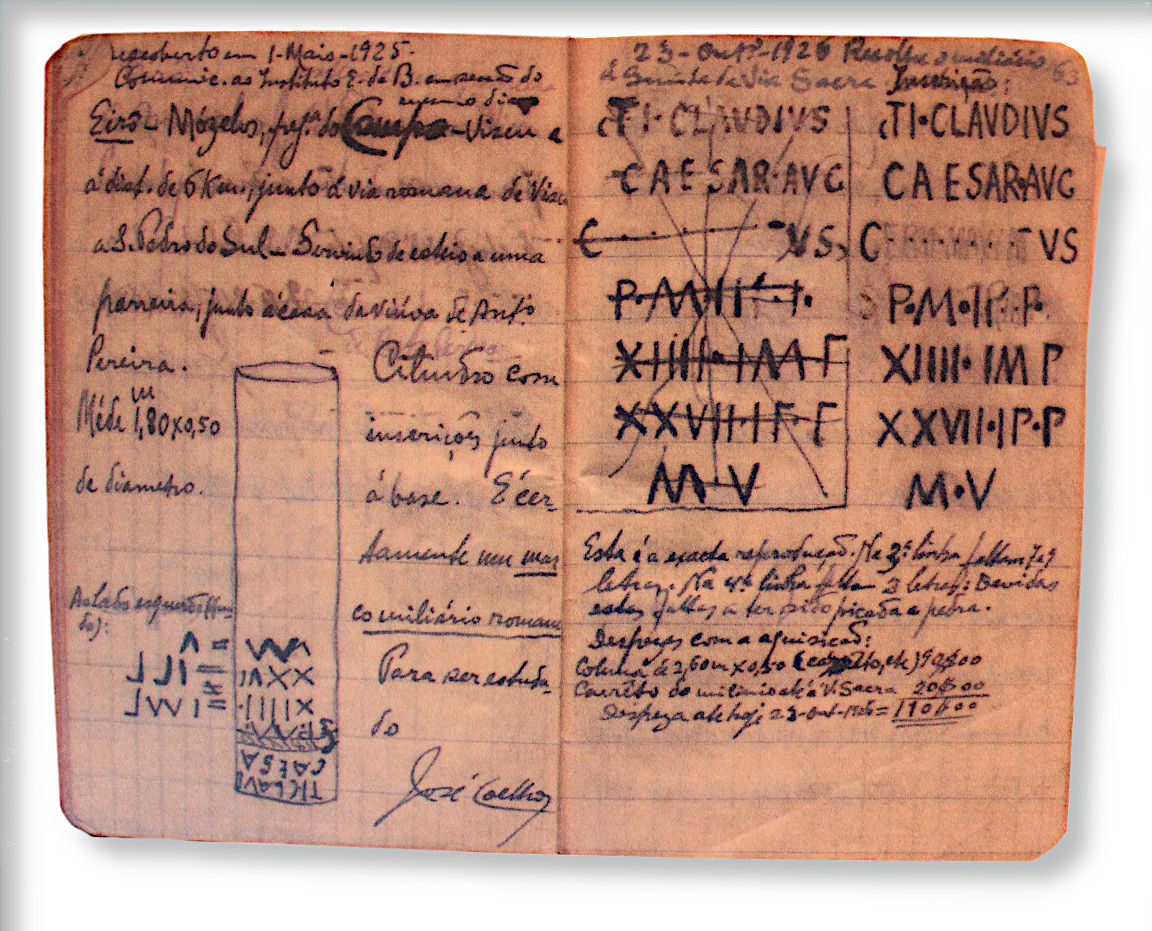 descoberto em 1-Maio-1925.
Comunic. ao Instituto E. da B. em sessão do
mesmo dia
Eirô - Mózelos, freg.ª do Campo - Viseu e
á dist. de 6 Km., junto á via romana de Viseu
a S. Pedro do Sul - Servindo de esteio a uma
parreira, junto á casa da viúva de Antº.
Pereira.
Méde 1,80x0,50
de diametro.
Cilindro com
inserições junto
á base. É cer-
tamente um mar-
co miliário romano
Para ser estuda-
do
José Coelho
Ao lado esquerdo
V
XXVII
XIIII
CAESA
TICLAV
23-Outº-1926
da Via Sacra Inscrição:
63
TI·CLAVDIVS
CAESAR·AVG
C VS
P·M·II·I·
XIIII·IM
XXVII·I
M·V
TI·CLAVDIVS
CAESAR·AVG
C VS
P·M·II·P.
XIIII·IMP
XXVII·IP·P
M·V
Esta é a exacta reprodução. Na 3ª linha faltam 7 a 9
letras. Na 4ª linha faltam 2 letras: Devidas
estas faltas a ter sido picada a pedra.
Despezas com a aquisição:
Coluna de 2,60m x 0,50 (carreto, etc) 90$00
Carrêto do miliário até á V. Sacra 20$00
Despeza até hoje 23-Out-1926 = 110$00